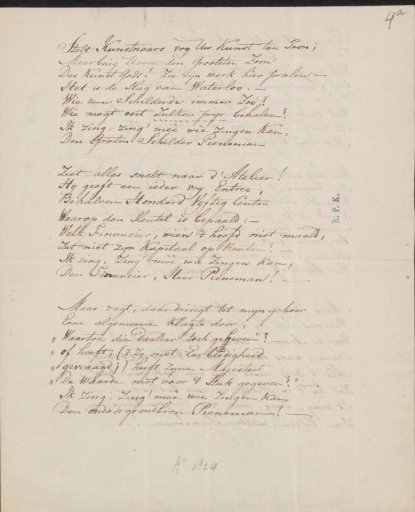 4a
Stelt Kunstenaars vry Uw Kunst ten Toon;
Maar buig voor den Grootsten Zoon
Der Kunst Zich! Zie zyn werk hier pralen —
Het is de Slag van Waterloo. —
Wie Schilderde immer Zoo?
Wie mogt ooit Zulken prys behalen?
Ik Zing, Zing' meê wie Zingen kan,
Den Grooten Schilder Pieneman
Ziet, alles snelt naar d' Atelier!
Hy geeft een ieder vry Entrée,
Behalven Honderd Vyftig Centen
Waarop den Sleutel is bepaald: —
Welk Financier, wien 't hoofd niet maald,
Zet niet Zyn Kapitaal op Renten?
Ik Zing, Zing' meê wie Zingen kan,
Den Financier, Heer Pieneman! —
Maar zagt, daar dringt tot myn gehoor
Eene algemeene Klagte door;
„Waartoe die Duiten toch gegeven"?
„of heeft, ('t Zy met Eerbiedigheid
„gevraagd;) heeft Zyne Majesteit
„De Waarde niet voor 't Stuk gegeven?"
Ik Zing, Zing' meê wie Zingen kan
Den ondoorgrondbren Pieneman! —
Ao 1824
R.P.K.